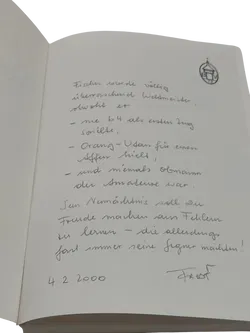 Fischer wurde völlig
überraschend Weltmeister
obwohl er
- nie b4 als ersten Zug
wählte,
- Orang-Utan für einen
Affen hielt,
- und niemals Obmann
der Amateure war.
Sein Vermächtnis soll die
Freude machen aus Fehlern
zu lernen - die allerdings
fast immer seine Gegner machten!
4.2.2000